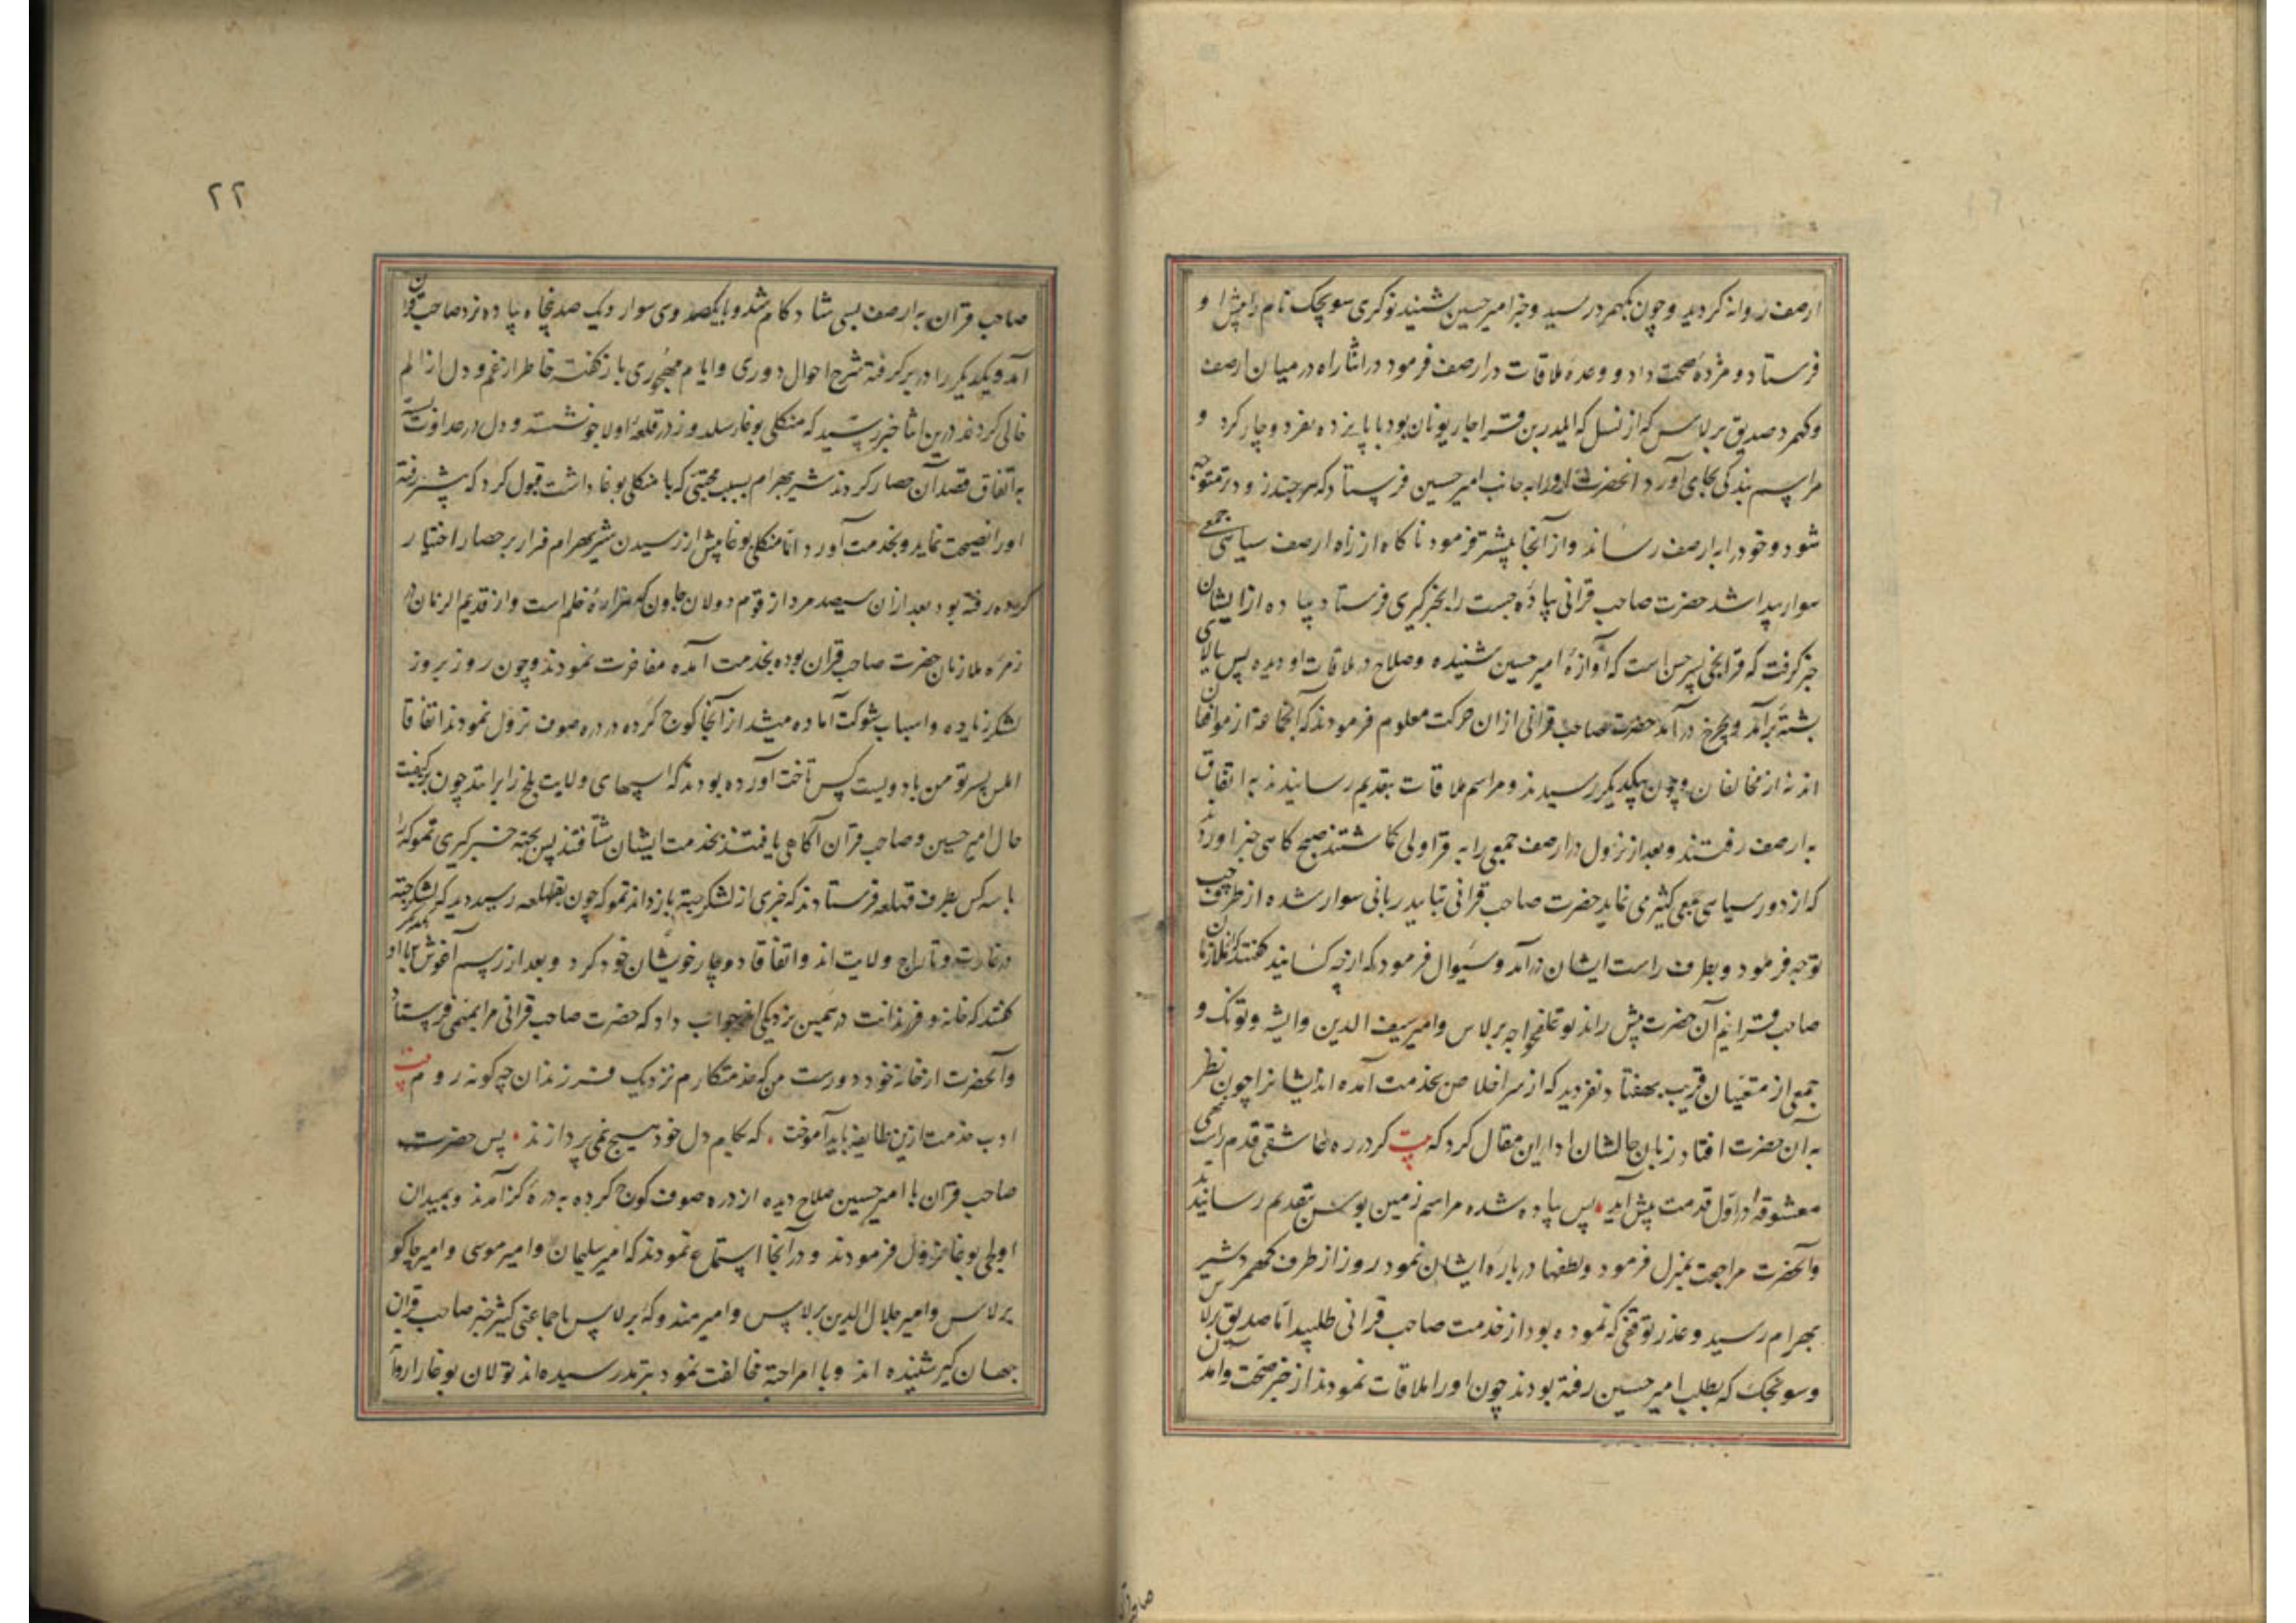 ارصف روانه کردید و چون بکهمرد رسید و خبر امیر حسین شنید نوکری سویجک نام را پیش او
فرستاد و مژدهٔ صحت داد و وعدهٔ ملاقات در ارصف فرمود در اثنا راه در میان ارصف
و کهمرد صدیق برلاس که از نسل که ایلدرین قراجار نویان بود با پانزده نفر دوچار کرد و
مراسم بندگی بجای آورد آنحضرت او را به جانب امیر حسین فرستاد که هر چند زودتر متوجه
شود و خود را به ارصف رساند و از آنجا پیشتر فرمود ناگاه از راه ارصف سیاهی جمعی
سوار پیدا شد حضرت صاحب قرانی پیادهٔ جست را بخبرگیری فرستاد پیاده از ایشان
خبر گرفت که قرانجی پسر حسن است که آوازهٔ امیر حسین شنیده و صلاح در ملاقات او دیده پس ببالای
پشته برآمد و بچرخ درآمد حضرت صاحب قرانی از ان حرکت معلوم فرمودند که آنجماعة از موافقان
اند نه از مخالفان و چون بیکدیگر رسیدند و مراسم ملاقات بتقدیم رسانیدند به اتفاق
به ارصف رفتند و بعد از نزول در ارصف جمعی را به قراولی گماشتند صبح گاهی خبر آوردند
که از دور سیاهی جمعی کثیری نماید حضرت صاحب قرانی بتایید ربانی سوار شده از طرف چپ
توجه فرمود و بطرف راست ایشان درآمد و سئوال فرمود که از چه کسانید گفتند که از ملازمان
صاحب قرانیم آن حضرت پیش راند توغلغخواجه برلاس و امیر سیف الدین و ایشه و توتک و
جمعی از متعینان قریب بهفتاد نفر دید که از سر اخلاص بخدمت آمده اند ایشانرا چون نظر
به آن حضرت افتاد زبان حالشان ادا این مقال کرد که بیت کر در ره عاشقی قدم راست نهی
معشوقه در اول قدمت پیش آید پس پیاده شده مراسم زمین بوسی بتقدیم رسانیدند
و آنحضرت مراجعت بمنزل فرمود و لطفها درباره ایشان نمود روز از طرف کهمرد شیر
بهرام رسید و عذر توقفی که نموده بود از خدمت صاحب قرانی طلبید اما صدیق برلاس
و سونجک که بطلب امیر حسین رفته بودند چون او را ملاقات نمودند از خبر صحت و آمدن
صاحب قران
۲۲
صاحب قران به ارصف بسی شاد کام شد و با یکصد و سی سوار و یک صد پنجاه پیاده نزد صاحب قران
آمد و یکدیگر را در بر گرفته شرح احوال دوری و ایام مهجوری باز گفته خاطر از غم و دل از الم
خالی کردند درین اثنا خبر رسید که منکلی بوغا سلدوز در قلعهٔ اولاجو نشسته و دل در عداوت بسته
به اتفاق قصد آن حصار کردند شیر بهرام بسبب محبتی که با منکلی بوغا داشت قبول کرد که پیشتر رفته
او را نصیحت نماید و بخدمت آورد اما منکلی بوغا پیش از رسیدن شیر بهرام فرار بر حصار اختیار
کرده رفته بود بعد از ان سیصد مرد از قوم دولان جاون که هزاره خلم است و از قدیم الزمان در
زمره ملازمان حضرت صاحب قران بوده بخدمت آمده مفاخرت نمودند و چون روز بروز
لشکر زیاده و اسباب شوکت آماده میشد از آنجا کوچ کرده در دره صوف نزول نمودند اتفاقا
المس پسر تومن با دویست کس تاخت آورده بودند که اسپهای ولایت بلخ را برانند چون بر کیفیت
حال امیر حسین و صاحب قران آگاهی یافتند بخدمت ایشان شتافتند پس بجهة خبر گیری تموکه را
با سه کس بطرف قهلغه فرستادند که خبری از لشکر جته باز داند تموکه چون بقهلغه رسید دید که لشکر جته
در غارت و تاراج ولایت اند و اتفاقا دوچار خویشان خود کرد و بعد از رسم آغوش با او
گفتند که خانه و فرزندانت در همین نزدیکی اند جواب داد که حضرت صاحب قرانی مرا بمهمی فرستاد
و آنحضرت از خانه خود دورست من که خدمتکارم نزدیک فرزندان چه کونه روم بیت
ادب خدمت ازین طایفه باید آموخت که بکام دل خود هیچ نمی پردازند پس حضرت
صاحب قران با امیر حسین صلاح دیده از دره صوف کوچ کرده به درهٔ کز آمدند و بمیدان
اویلی بوغا نزول فرمودند و در آنجا استماع نمودند که امیر سلیمان و امیر موسی و امیر جاکو
برلاس و امیر جلال الدین برلاس و امیر هندوکه برلاس با جماعتی کثیر خبر صاحب قران
جهان گیر شنیده اند و با امرا جته مخالفت نمود بترمذ رسیده اند تولان بوغا را روان